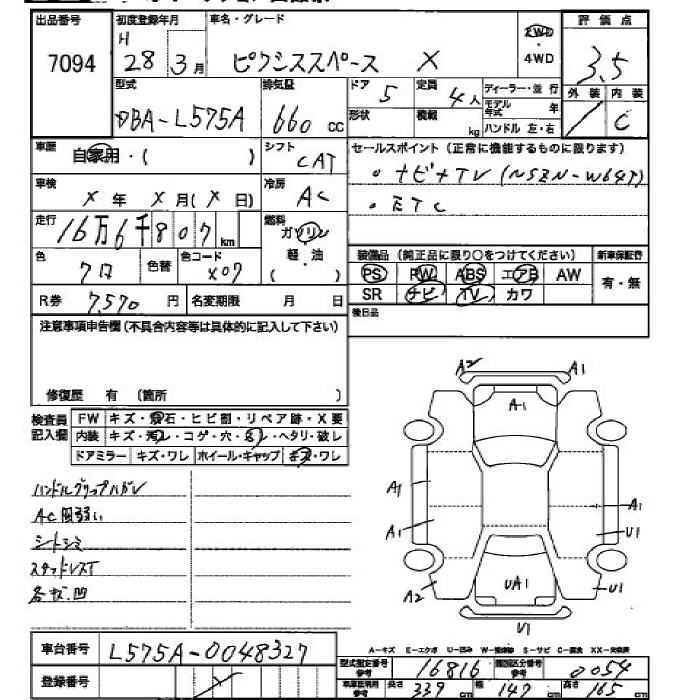 出品番号 初度登録年月 車名・グレード 評価点
7094 H 28年 3月 ピクシススペース X 2WD・4WD 3.5
型式 排気量 ドア 定員 ディーラー・並行 外装 内装
DBA-L575A 660 cc 5 4人 モデル年式 年 / C
形状 積載 kg ハンドル 左・右
車歴 自家用・( ) シフト CAT セールスポイント(正常に機能するものに限ります)
車検 X年 X月(X日) 冷房 AC ・ナビ+TV (NSZN-W64T)
・ETC
走行 16万6千807km 燃料 ガソリン 軽・油 ( )
色 クロ 色替 色コード X07 装備品(純正品に限り○をつけてください) 新車保証書
PS PW ABS エアB AW 有・無
R券 7,570円 名変期限 月 日 SR ナビ TV カワ
後日品
注意事項申告欄(不具合内容等は具体的に記入して下さい)
修復歴 有 (箇所 )
検査員記入欄 FW キズ・飛石・ヒビ割・リペア跡・X要
内装 キズ・汚レ・コゲ・穴・スレ・ヘタリ・破レ
ドアミラー キズ・ワレ ホイール・キャップ キズ・ワレ
ハンドルグリップハガレ
AC 弱い
シートシミ
スタッドレスT
各キズ.凹
A2 A1
A-1
A1 A1
A1 U1
A2 UA1 U1
U1
車台番号 L575A-0048327
登録番号 X
A-キズ E-エクボ U-凹み W-補修跡 S-サビ C-腐食 XX-交換済
型式指定番号 参考 16816 類別区分番号 参考 0054
車庫証明用 参考 長さ 339cm 幅 147cm 高さ 165cm